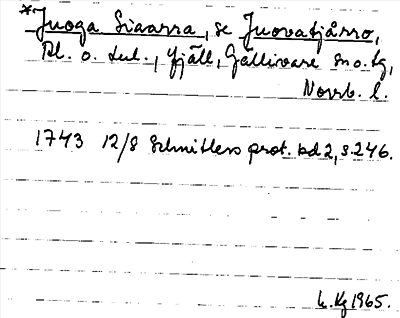 *Juoga Siaarra, se Juovatjårro,
Bl. o. tul., fjäll, Gällivare sn o. tg,
Norrb. l.
1743 12/8 Schnitlers prot. bd 2, s. 246.
h. Kg 1965.